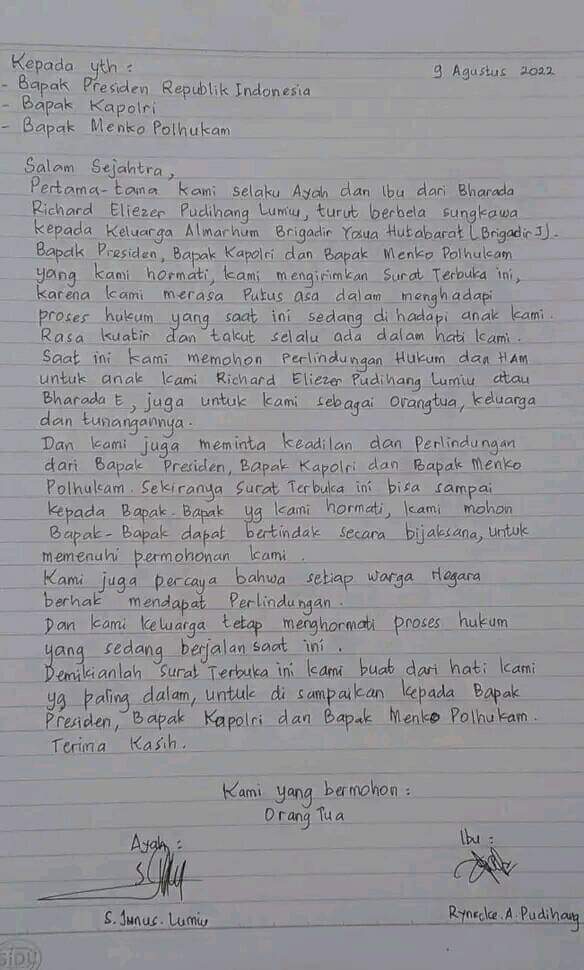 Kepada yth :
9 Agustus 2022
- Bapak Presiden Republik Indonesia
- Bapak Kapolri
- Bapak Menko Polhukam
Salam Sejahtra,
Pertama-tama kami selaku Ayah dan Ibu dari Bharada
Richard Eliezer Pudihang Lumiu, turut berbela sungkawa
kepada Keluarga Almarhum Brigadir Yosua Hutabarat (Brigadir J).
Bapak Presiden, Bapak Kapolri dan Bapak Menko Polhukam
yang kami hormati, kami mengirimkan Surat Terbuka ini,
karena kami merasa Putus asa dalam menghadapi
proses hukum yang saat ini sedang di hadapi anak kami.
Rasa kuatir dan takut selalu ada dalam hati kami.
Saat ini kami memohon Perlindungan Hukum dan HAM
untuk anak kami Richard Eliezer Pudihang Lumiu atau
Bharada E, juga untuk kami sebagai orangtua, keluarga
dan tunangannya.
Dan kami juga meminta keadilan dan Perlindungan
dari Bapak Presiden, Bapak Kapolri dan Bapak Menko
Polhukam. Sekiranya Surat Terbuka ini bisa sampai
kepada Bapak-Bapak yg kami hormati, kami mohon
Bapak-Bapak dapat bertindak secara bijaksana, untuk
memenuhi permohonan kami.
Kami juga percaya bahwa setiap warga Negara
berhak mendapat Perlindungan.
Dan kami keluarga tetap menghormati proses hukum
yang sedang berjalan saat ini.
Demikianlah Surat Terbuka ini kami buat dari hati kami
yg paling dalam, untuk di sampaikan kepada Bapak
Presiden, Bapak Kapolri dan Bapak Menko Polhukam.
Terima Kasih.
Kami yang bermohon :
Orang Tua
Ayah :
Ibu :
S. Junus. Lumiu
Rynecke. A. Pudihang
SIDU